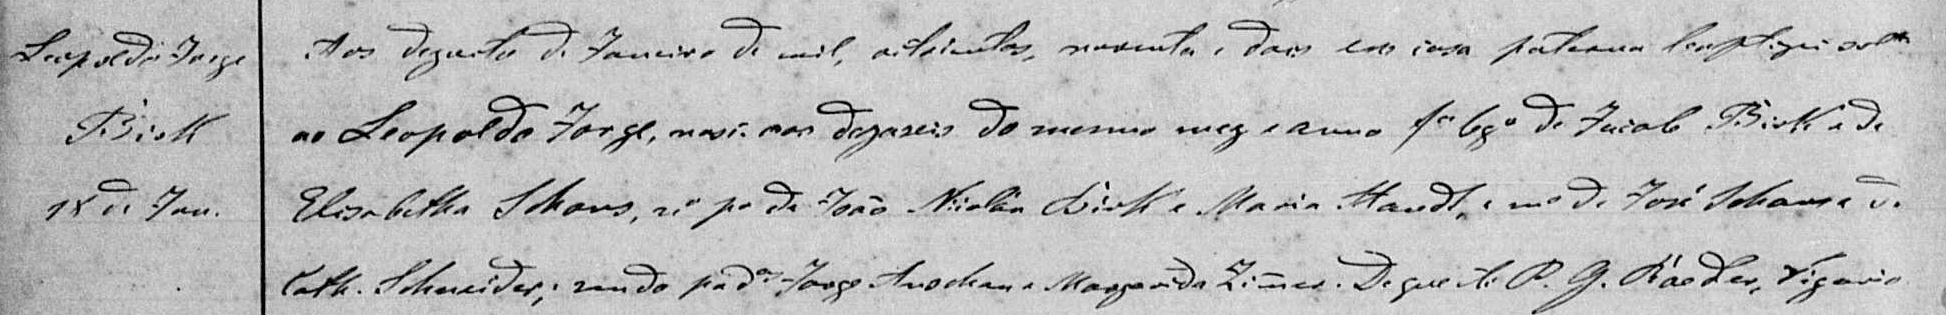 Leopoldo Jorge
Birk
18 de Jan.
Aos dezoito de Janeiro de mil, oitocentos, noventa e dois em casa paterna baptizei solte
ao Leopoldo Jorge, nasc. aos dezaseis do mesmo mez e anno fo lego de Jacob Birk e de
Elisabetha Schaus, no pa de João Nicolau Birk e Maria Staudt, e mo de José Schaus e de
Cath. Schneider; sendo pados Jorge e Margarida Zimmer. De que fiz P. G. Raeder, Vigario